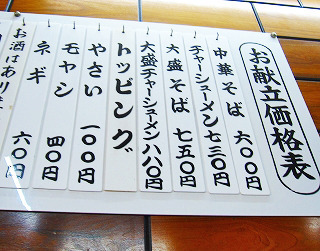 お献立価格表
中華そば 六〇〇円
チャーシューメン 七三〇円
大盛そば 七五〇円
大盛チャーシューメン 八八〇円
トッピング
やさい 一〇〇円
モヤシ 四〇円
ネギ 六〇円
お酒はあり